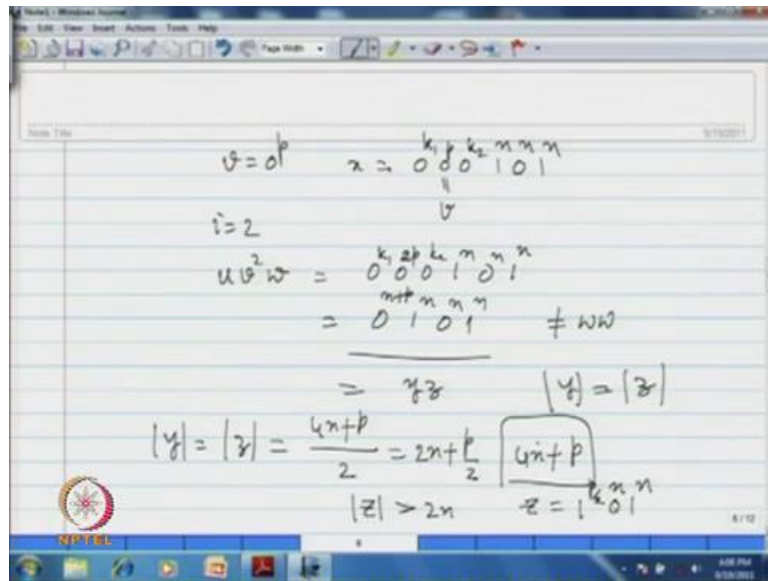 Note1 - Windows Journal
File Edit View Insert Actions Tools Help
Page Width
Note Title
9/19/2011
v = 0^p x = 0^{k_1} 0^p 0^{k_2} 1^n 0^n 1^n
||
v
i = 2
u v^2 w = 0^{k_1} 0^{2p} 0^{k_2} 1^n 0^n 1^n
= 0^{n+p} 1^n 0^n 1^n ≠ ww
= yz |y| = |z|
|y| = |z| = \frac{4n+p}{2} = 2n + \frac{p}{2} 4n+p
|z| > 2n z = 1^k 0^n 1^n
NPTEL
6/12
6:08 PM
9/19/2011